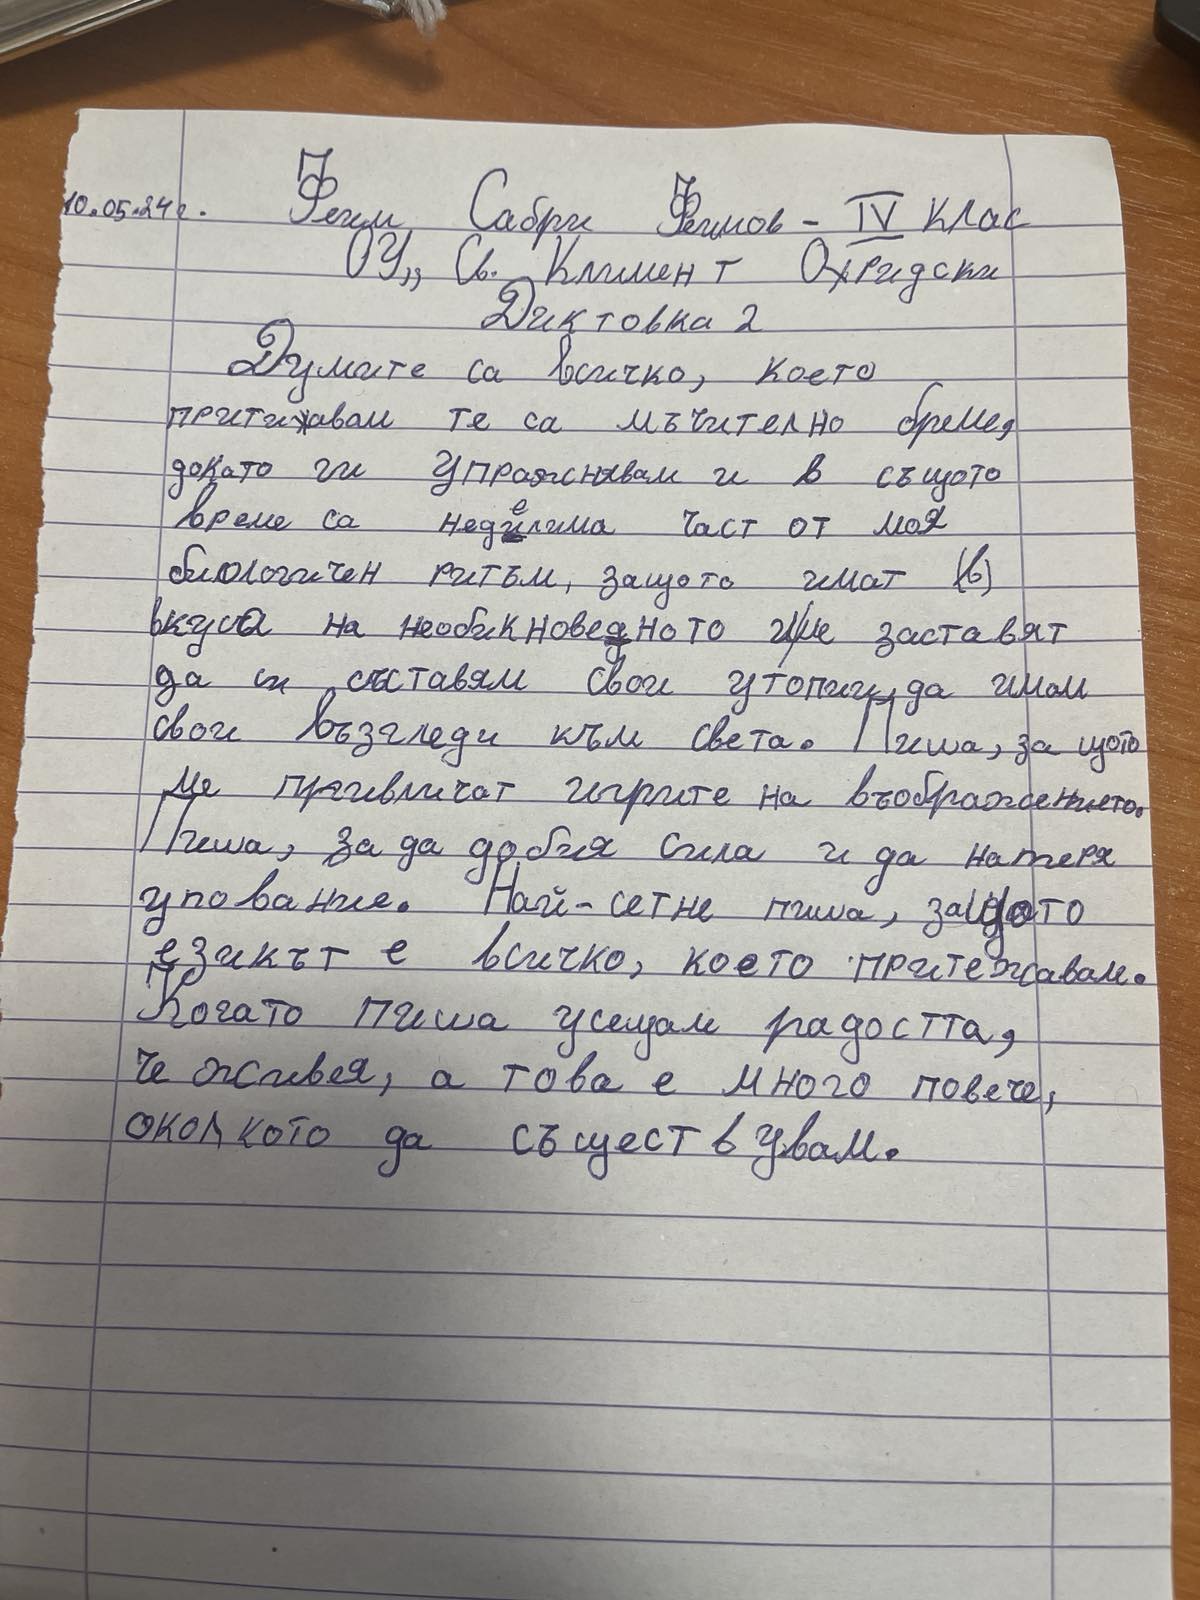 10.05.24г. Феим Сабри Феимов - IV клас
ОУ,, Св. Климент Охридски
Диктовка 2
Думите са всичко, което
притижавам те са мъчително бреме,
докато ги упражнявам и в същото
време са неделима част от моя
биологичен ритъм, защото имат (в)
вкуса на необикновеното и ме заставят
да си съставям свои утопии, да имам
свои възгледи към света. Пиша, защото
ме привличат игрите на въображението.
Пиша, за да добия сила и да намеря
упование. Най-сетне пиша, защото
езикът е всичко, което притежавам.
Когато пиша усещам радостта,
че живея, а това е много повече,
околкото да съществувам.